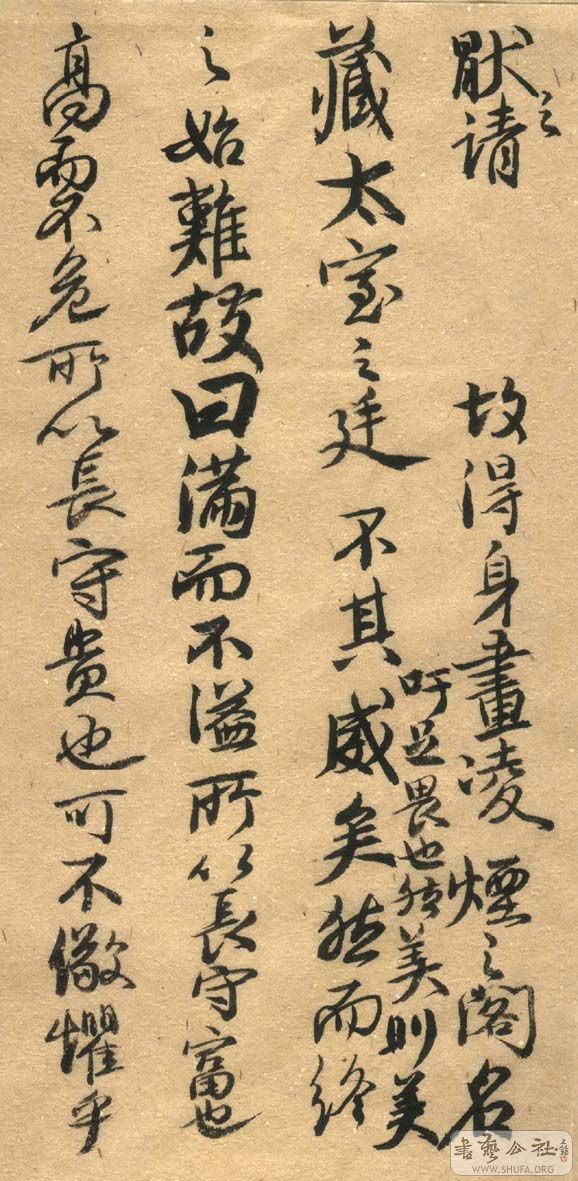 猒之請 故得身畫凌煙之閣名
藏太室之廷 不其威矣然而終
吁足畏也然美則美
之始難故曰滿而不溢所以長守富也
高而不危所以長守貴也可不儆懼乎
書藝公社
WWW.SHUFA.ORG